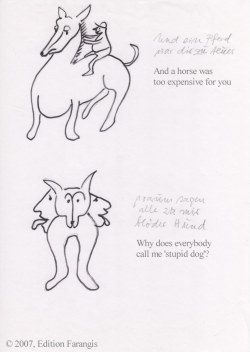 und ein Pferd
war dir zu teuer
And a horse was
too expensive for you
warum sagen
alle zu mir
blöder Hund
Why does everybody
call me 'stupid dog'?
© 2007, Edition Farangis